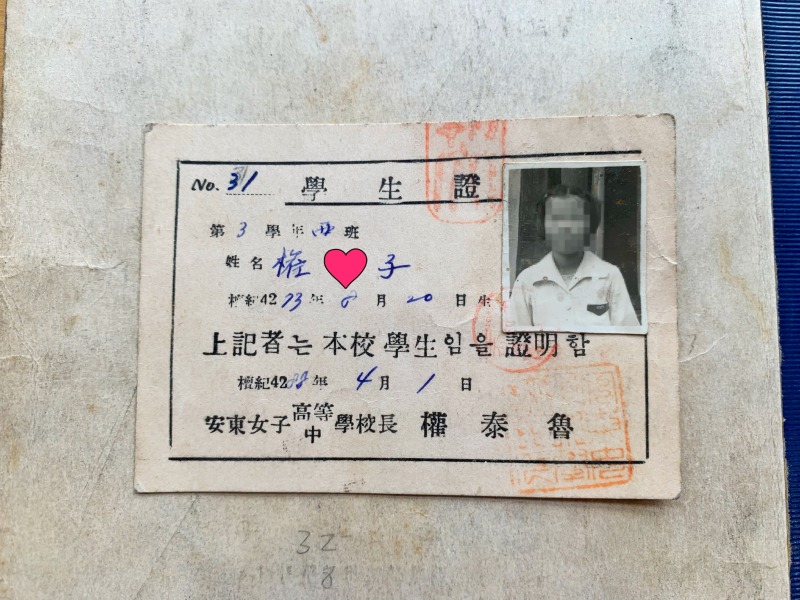 No. 31 學生證
第 3 學年 班
姓名 権 子
檀紀4273年 8月 20日生
上記者는 本校 學生임을 證明함
檀紀4288年 4月 1日
安東女子 高等 中 學校長 權泰魯
32
8